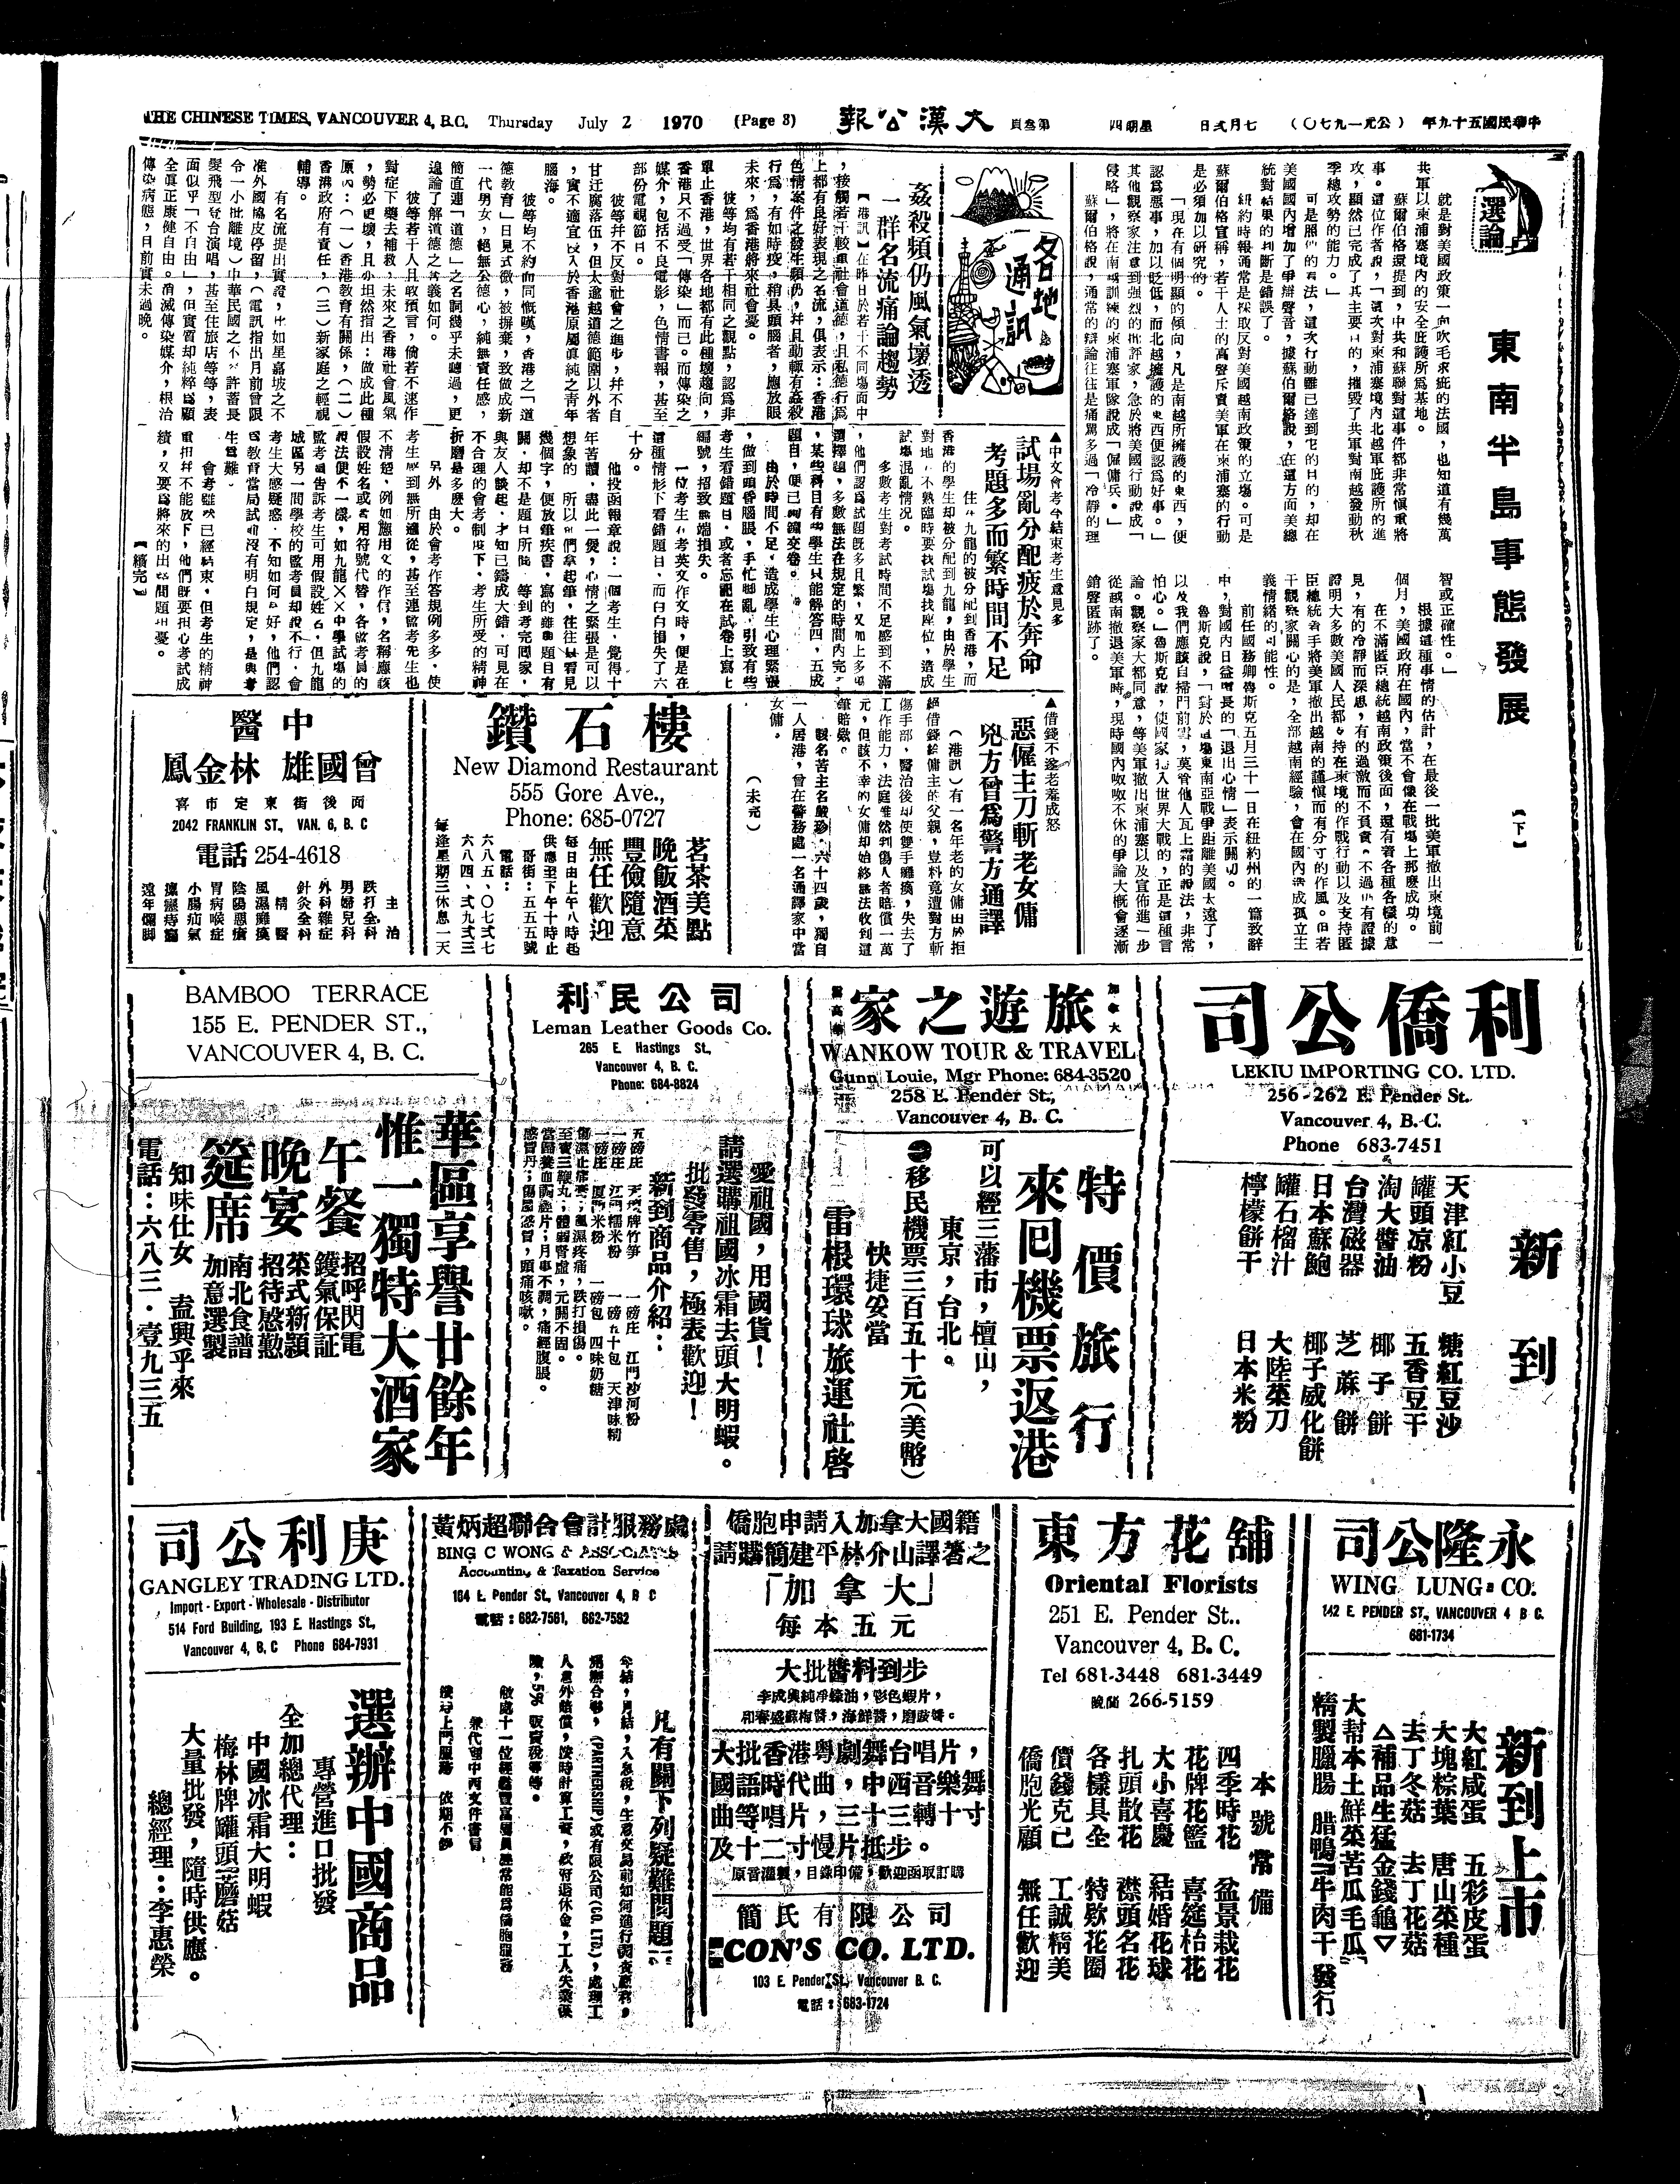 THE CHINESE TIMES, VANCOUVER 4, B.C. Thursday July 2 1970 (Page 3)
報公漢大
頁叁第
四期星
日弍月七
(〇七九一元公)
年九十五國民華中
選論
東南半島事態發展
【下】
就是對美國政策一向吹毛求疵的法國,也知道有幾萬
共軍以柬浦寨境內的安全庇護所爲基地。
蘇爾伯格還提到,中共和蘇聯對這事件都非常愼重將
事。這位作者說,「這次對柬浦寨境內北越軍庇護所的進
攻,顯然已完成了其主要目的,摧毀了共軍對南越發動秋
季總攻勢的能力。」
可是照他的看法,這次行動雖已達到它的目的,却在
美國國內增加了爭辯聲音,據蘇伯爾格說,在這方面美總
統對結果的判斷是錯誤了。
紐約時報通常是採取反對美國越南政策的立塲。可是
蘇爾伯格宣稱,若干人士的高聲斥責美軍在柬浦寨的行動
是必須加以研究的。
「現在有個明顯的傾向,凡是南越所擁護的東西,便
認爲惡事,加以貶低,而北越擁護的東西便認爲好事。」
其他觀察家注意到强烈的批評家,急於將美國行動說成「
侵略」,將在南越訓練的柬浦寨軍隊說成「傀儡兵。」
蘇爾伯格說,通常的辯論往往是痛罵多過「冷靜的理
智或正確性。」
根據這種事情的估計,在最後一批美軍撤出柬境前一
個月,美國政府在國內,當不會像在戰塲上那麽成功。
在不滿匿臣總統越南政策後面,還有著各種各樣的意
見,有的冷靜而深思,有的過激而不負責。不過所有證據
證明大多數美國人民都支持在柬境的作戰行動以及支持匿
臣總統着手將美軍撤出越南的謹愼而有分寸的作風。但若
干觀察家關心的是,全部越南經驗,會在國內造成孤立主
義情緒的可能性。
前任國務卿魯斯克五月三十一日在紐約州的一篇致辭
中,對國內日益增長的「退出心情」表示關切。
魯斯克說,「對於這塲東南亞戰爭距離美國太遠了,
以及我們應該自掃門前雪,莫管他人瓦上霜的說法,非常
怕心。」魯斯克說,使國家捲入世界大戰的,正是這種言
論。觀察家大都同意,等美軍撤出柬浦寨以及宣佈進一步
從越南撤退美軍時,現時國內呶呶不休的爭論大概會逐漸
銷聲匿跡了。
各地通訊
姦殺頻仍風氣壞透
一群名流痛論趨勢
【港訊】在昨日於若干不同塲面中
,接觸若干較重社會道德,且私德行爲
上都有良好表現之名流,俱表示:香港
色情案件之發生頻仍,幷且動輒有姦殺
行爲,有如時疫,稍具頭腦者,應放眼
未來,爲香港將來社會憂。
彼等均有若干相同之觀點,認爲非
單止香港,世界各地都有此種壞趨向,
香港只不過受「傳染」而已。而傳染之
媒介,包括不良電影,色情書報,甚至
部份電視節目。
彼等幷不反對社會之進步,幷不自
甘迂腐落伍,但太逾越道德範圍以外者
,實不適宜投入於香港原屬眞純之靑年
腦海。
彼等均不約而同慨嘆,香港之「道
德敎育」日見式微,被摒棄,致做成新
一代男女,絕無公德心,純無責任感,
簡直連「道德」之名詞幾乎未聽過,更
遑論了解道德之眞義如何。
彼等若干人且敢預言,倘若不速作
對症下藥去補救,未來之香港社會風氣
,勢必更壞,且亦坦然指出:做成此種
原因:(一)香港敎育有關係,(二)
香港政府有責任,(三)新家庭之輕視
輔導。
有名流提出實證,比如星嘉坡之不
准外國嬉皮停留,(電訊指出月前曾限
令一小批離境)中華民國之不許蓄長
髮飛型登台演唱,甚至住旅店等等,表
面似乎「不自由」,但實質却純粹爲顧
全眞正康健自由。消滅傳染媒介,根治
傳染病態,目前實未過晚。
▲中文會考今結束考生意見多
試塲亂分配疲於奔命
考題多而繁時間不足
住在九龍的被分配到香港,而
香港的學生却被分配到九龍,由於學生
對地不熟臨時要找試塲找座位,造成
試塲混亂情況。
多數考生對考試時間不足感到不滿
,他們認爲試題旣多且繁,又加上多項
選擇題,多數無法在規定的時間內完
,某些科目有些學生只能解答四,五成
題目,便已到繳交卷。
由於時間不足,造成學生心理緊張
,做到頭昏腦脹,手忙脚亂,引致有些
考生看錯題目,或者忘記在試卷上寫上
編號,招致無端損失。
一位考生在考英文作文時,便是在
這種情形下看錯題目,而白白損失了六
十分。
他投函報章說:一個考生,覺得十
年苦讀,盡此一役,心情之緊張是可以
想象的,所以他們拿起筆,往往只看見
幾個字,便放筆疾書,寫的雖與題目有
關,却不是題目所指,等到考完回家,
與友人談起,才知已鑄成大錯,可見在
不合理的會考制度下,考生所受的精神
折磨是多麽大。
另外,由於會考作答規例多多,使
考生感到無所適從,甚至連監考先生也
不淸楚,例如應用文的作信,名稱應該
假設姓名或者用符號代替,各監考員的
說法便不一樣,如九龍××中學試塲的
監考員告訴考生可用假設姓名,但九龍
城區另一間學校的監考員却說不行,會
考生大感疑惑,不知如何是好,他們認
爲敎育當局試前沒有明白規定,是與考
生爲難。
會考雖然已經結束,但考生的精神
重担幷不能放下,他們旣要担心考試成
績,又要爲將來的出路問題担憂。
【續完】
▲借錢不遂老羞成怒
惡僱主刀斬老女傭
兇方曾爲警方通譯
(港訊)有一名年老的女傭由於拒
絕借錢給傭主的父親,豈料竟遭對方斬
傷手部,醫治後却使雙手癱瘓,失去了
工作能力,法庭雖然判傷人者賠償一萬
元,但該不幸的女傭却始終無法收到這
筆賠欵。
該名苦主名嚴珍,六十四歲,獨自
一人居港,曾在警務處一名通譯家中當
女傭。
(未完)
鑽石樓
New Diamond Restaurant
555 Gore Ave.,
Phone: 685-0727
茗茶美點
晚飯酒菜
豐儉隨意
無任歡迎
每日由上午八時起
供應至下午十時止
哥街:五五五號
電話:
六八五、〇七弍七
六八四、弍九弍三
每逢星期三休息一天
中醫
曾國雄 林金鳳
喜市定東街後面
2042 FRANKLIN ST., VAN. 6, B. C
電話 254-4618
主治
跌打全科
男婦兒科
外科雜症
針灸全科
精醫
風濕癱瘓
陰陽惡瘡
胃病喉症
小腸疝氣
遠年爛脚
利僑公司
LEKIU IMPORTING CO. LTD.
256-262 E. Pender St.
Vancouver 4, B.C.
Phone 683-7451
新到
天津紅小豆 糖紅豆沙
罐頭凉粉 五香豆干
淘大醬油 椰子餅
台灣磁器 芝蔴餅
日本蘇鮑 椰子威化餅
罐石榴汁 大陸菜刀
檸檬餅干 日本米粉
加拿大
旅遊之家
WANKOW TOUR & TRAVEL
Gunn Louie, Mgr Phone: 684-3520
258 E. Pender St.,
Vancouver 4, B. C.
特價旅行
來回機票返港
可以經三藩市,檀山,
東京,台北。
移民機票三百五十元(美幣)
快捷妥當
雷根環球旅運社啓
利民公司
Leman Leather Goods Co.
265 E. Hastings St.,
Vancouver 4, B. C.
Phone: 684-8824
愛祖國,用國貨!
請選購祖國冰霜去頭大明蝦。
批發零售,極表歡迎!
新到商品介紹:
五磅庄 天壇牌竹笋 一磅庄 江門沙河粉
一磅庄 江門糯米粉 一磅五十包 天津味粉
一磅庄 厦門米粉 一磅包 四味奶糖
傷濕止痛膏;風濕疼痛,跌打損傷。
至寶三鞭丸;體弱腎虛,元關不固。
當歸養血調經片;月事不調,痛經腹脹。
感冒丹;傷風感冒,頭痛咳嗽。
BAMBOO TERRACE
155 E. PENDER ST.,
VANCOUVER 4, B. C.
華區享譽廿餘年
惟一獨特大酒家
午餐 招呼閃電 鑊氣保証
晚宴 菜式新穎 招待慇懃
筵席 南北食譜 加意選製
知味仕女 盍興乎來
電話:六八三·壹九三五
永隆公司
WING LUNG CO.
142 E. PENDER ST., VANCOUVER 4 B C.
681-1734
新到上市
大紅咸蛋 五彩皮蛋
大塊粽葉 唐山菜種
去丁冬菇 去丁花菇
△補品生猛金錢龜▽
大幫本土鮮菜苦瓜毛瓜
精製臘腸 腊鴨 牛肉干 發行
東方花舖
Oriental Florists
251 E. Pender St..
Vancouver 4, B. C.
Tel 681-3448 681-3449
晚間 266-5159
本號常備
四季時花 盆景栽花
花牌花籃 喜筵枱花
大小喜慶 結婚花球
扎頭散花 襟頭名花
各樣具全 特欵花圈
價錢克己 工誠精美
僑胞光顧 無任歡迎
僑胞申請入加拿大國籍
請購簡建平林介山譯著之
「加拿大」
每本五元
大批醬料到步
李成興純凈蠔油,彩色蝦片,
和春盛蘇梅醬,海鮮醬,磨豉醬。
大批香港粤劇舞台唱片,
國語時代曲,中西音樂,舞
曲等唱片,三十三轉十寸
及十二寸慢片抵步。
原音灌製,目錄印備,歡迎函取訂購
簡氏有限公司
CON'S CO. LTD.
103 E. Pender St., Vancouver B. C.
電話:683-1724
黃炳超聯合會計服務處
BING C WONG & ASSOCIATES
Accounting & Taxation Service
164 E. Pender St., Vancouver 4, B C
電話:682-7561, 682-7582
凡有關下列疑難問題
年結,月結,入息稅,生意交易前如何進行調查應利,
開辦合夥,(PARTNERSHIP)或有限公司(CO. LTD.),處理工
人意外賠償,按時計算工資,政府退休金,工人失業保
險,5% 販賣稅等等。
敝處十一位經驗豐富專員經常能爲僑胞服務
兼代理中西文件書信
庚利公司
GANGLEY TRADING LTD.
Import - Export - Wholesale - Distributor
514 Ford Building, 193 E. Hastings St.,
Vancouver 4, B, C Phone 684-7931
選辦中國商品
專營進口批發
全加總代理:
中國冰霜大明蝦
梅林牌罐頭蘑菇
大量批發,隨時供應。
總經理:李惠榮